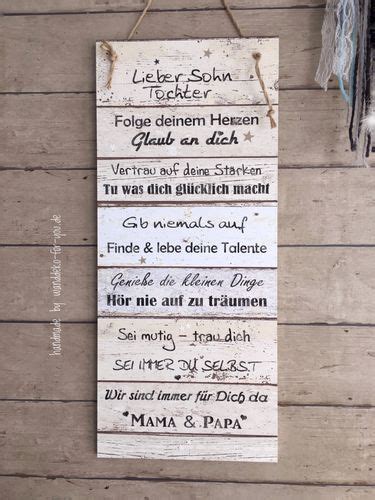 Lieber Sohn
Tochter
Folge deinem Herzen
Glaub an dich
Vertrau auf deine Stärken
Tu was dich glücklich macht
Gib niemals auf
Finde & lebe deine Talente
Genieße die kleinen Dinge
Hör nie auf zu träumen
Sei mutig - trau dich
SEI IMMER DU SELBST
Wir sind immer für Dich da
MAMA & PAPA
handmade by wanddeko-for-you.de